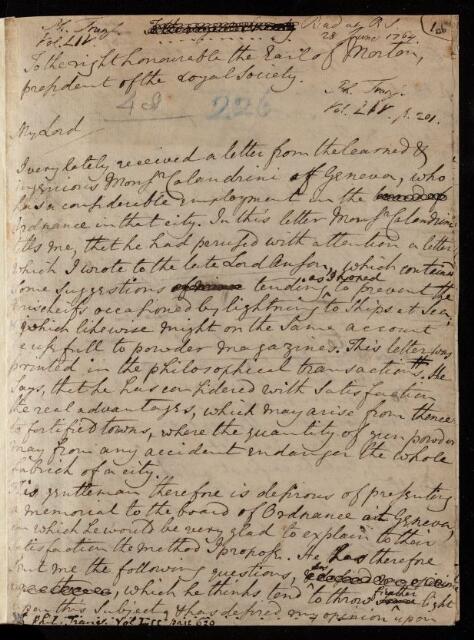 Ph. Trans.
Vol. LIV.
Read at R.S.
28 June 1764.
To the right honourable the Earl of Morton,
president of the Royal Society.
Ph. Trans.
Vol. LIV. p. 201.
48
226
My Lord
I very lately received a letter from the learned &
ingenious Monsr. Calandrini of Geneva, who
has a considerable employment in the
Ordnance in that city. In this letter Monsr. Calandrini
tells me, that he had perused with attention a letter
which I wrote to the late Lord Anson, which contain'd
some suggestions tending, to prevent the
mischeifs occasioned by lightning to ships at sea,
& which likewise might on the same account
be usefull to powder magazines. This letter was
printed in the philosophical transactions. He
says, that he has considered with satisfaction
the real advantages, which may arise from thence
to fortified towns, where the quantity of gun powder
may from any accident endanger the whole
fabrick of a city.
This gentleman therefore is desirous of presenting
a memorial to the board of Ordnance at Geneva,
in which he would be very glad to explain to their
satisfaction the method I propose. He has therefore
sent me the following questions,
which he thinks tend to throw further light
upon this subject, & has desired my opinion upon